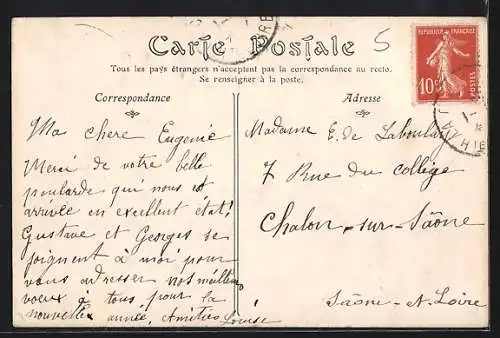 Carte Postale
5
Tous les pays étrangers n'acceptent pas la correspondance au recto.
Se renseigner à la poste.
Correspondance
Adresse
RÉPUBLIQUE FRANÇAISE
10c
POSTES
Ma chere Eugenie
Merci de votre belle
poularde qui nous est
arrivée en excellent état!
Gustave et Georges se
joignent à moi pour
vous adresser nos meilleurs
voeux à tous pour la
nouvelle année, Amitiés Louise
Madame E. de Laboulay
7 Rue du collège
Chalon-sur-Saône
Saône-et-Loire